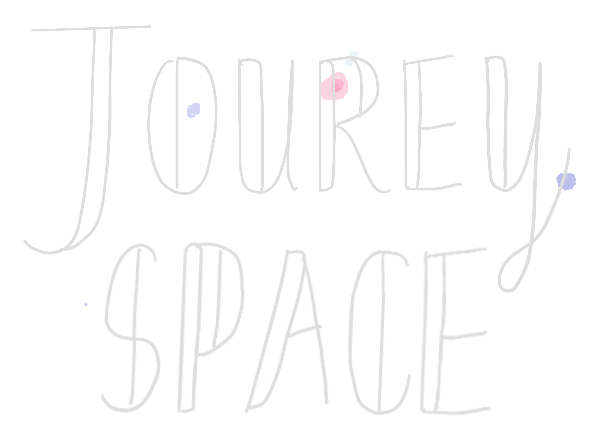 JOUREY
SPACE